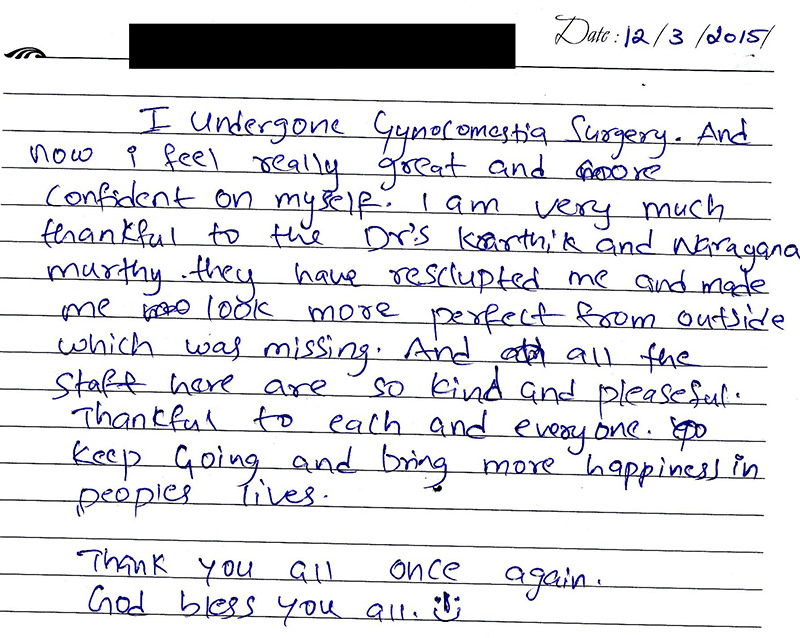 Date: 12/3/2015/
I undergone Gynocomastia Surgery. And
now i feel really great and more
confident on myself. I am very much
thankful to the Dr's Karthik and Narayana
murthy. they have resclupted me and made
me look more perfect from outside
which was missing. And all the
Staff here are so kind and pleaseful.
Thankful to each and everyone.
Keep Going and bring more happiness in
peoples lives.
Thank you all once again.
God bless you all.